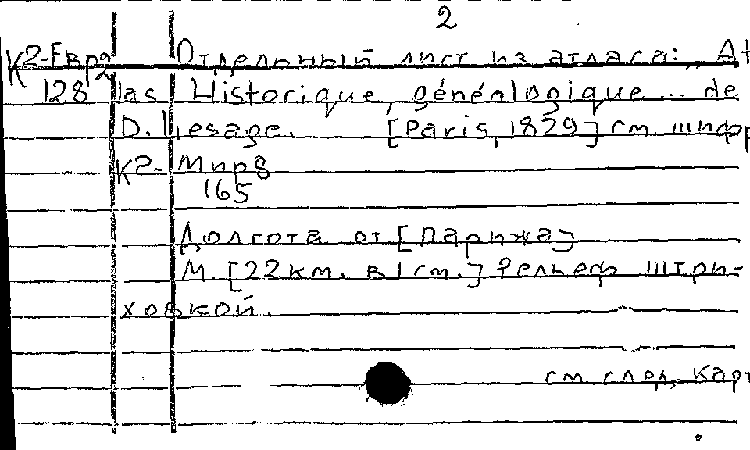 2
К2-Евр2 Отдельный лист из атласа: „At
128 las Historique, généalogique ... de
D. Lesage. [Paris, 1829] см. шифр
К2-Мир8
165
Долгота от [Парижа]
М. [22 км. в 1 см.] Рельеф штри-
ховкой.
см. след. карт